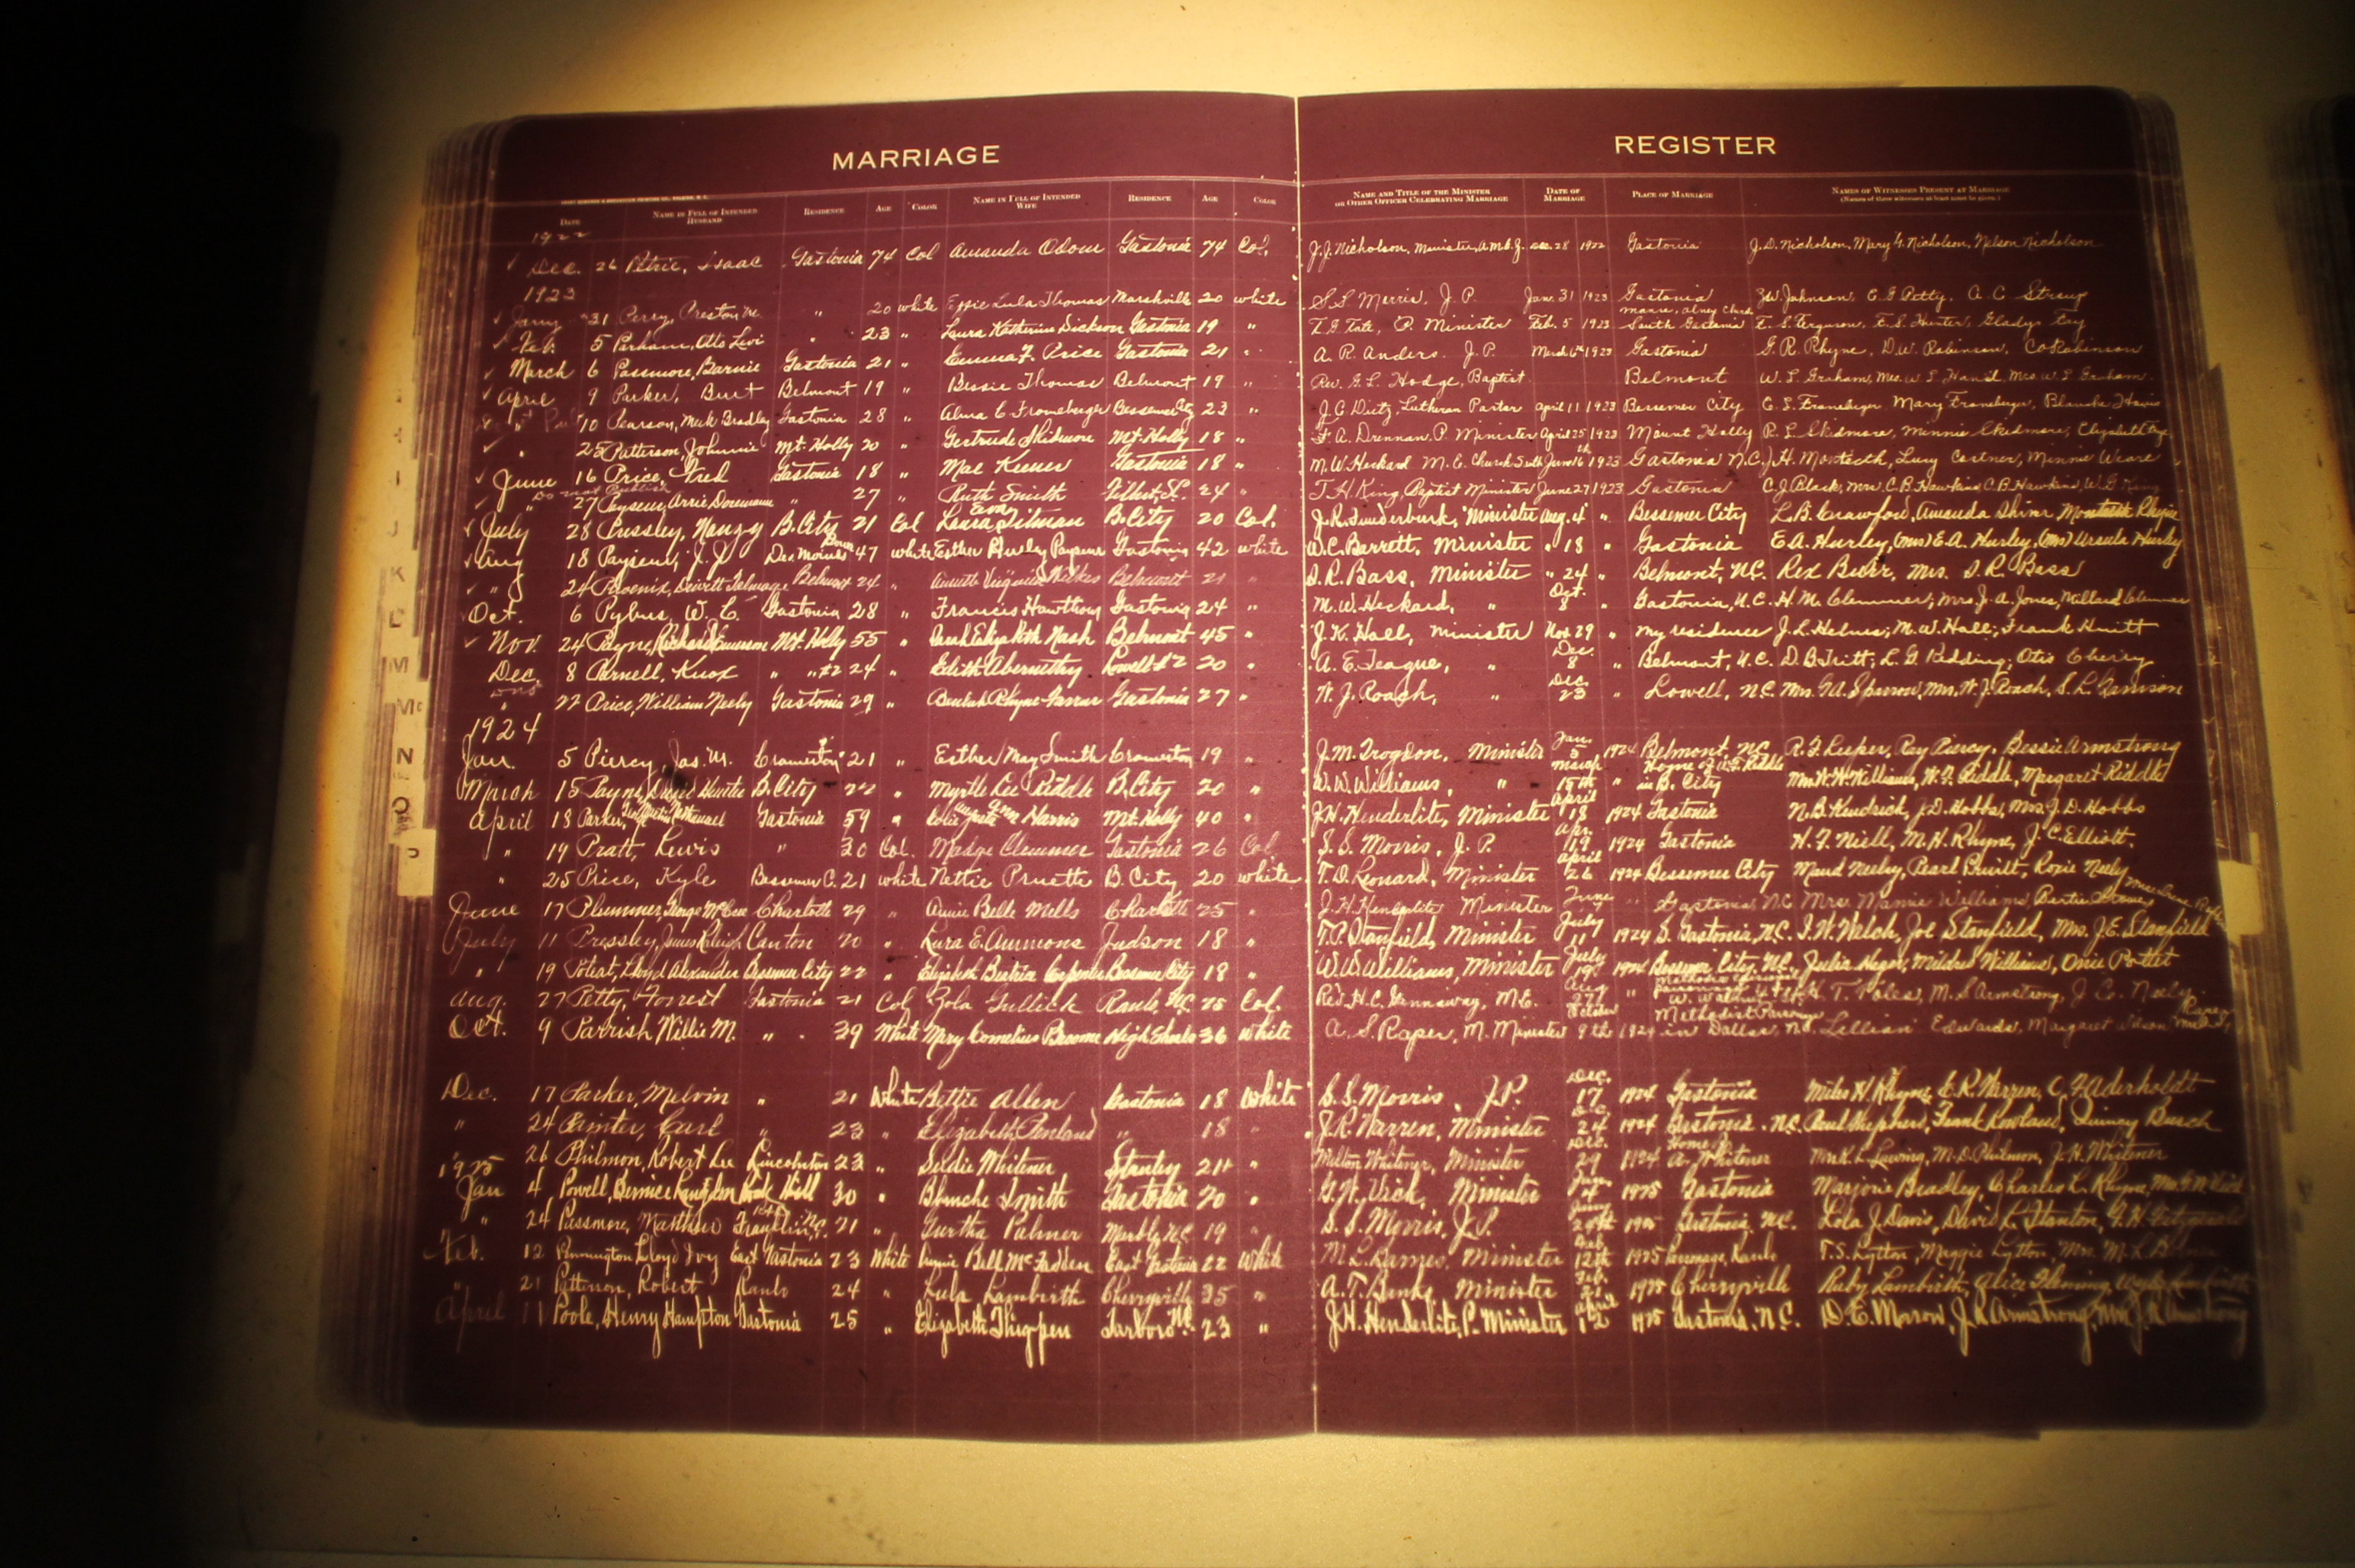 MARRIAGE REGISTER
DATE NAME IN FULL OF INTENDED HUSBAND RESIDENCE AGE COLOR NAME IN FULL OF INTENDED WIFE RESIDENCE AGE COLOR NAME AND TITLE OF THE MINISTER OR OTHER OFFICER CELEBRATING MARRIAGE DATE OF MARRIAGE PLACE OF MARRIAGE NAMES OF WITNESSES PRESENT AT MARRIAGE (Names of three witnesses at least must be given.)
1922
✓ Dec. 26 Petrie, Isaac Gastonia 74 Col Amanda Odom Gastonia 74 Col. J. J. Nicholson, Minister, A.M.E.Z. Dec. 28 1922 Gastonia J. D. Nicholson, Mary G. Nicholson, Nelson Nicholson
1923
✓ Jany 31 Perry, Preston M. " 20 white Effie Lula Thomas Marshville 20 white S. S. Morris, J. P. Jan. 31 1923 Gastonia Z. W. Johnson, E. G. Petty, A. C. Stroup
✓ Feb. 5 Parham, Otto Levi " 23 " Laura Katherine Dickson Gastonia 19 " T. G. Tate, P. Minister Feb. 5 1923 manse, Olney Church South Gastonia E. S. Ferguson, E. S. Hunter, Gladys Fay
✓ March 6 Passmore, Barnie Gastonia 21 " Emma F. Price Gastonia 21 " A. R. Anders, J. P. March 6th 1923 Gastonia G. R. Rhyne, D. W. Robinson, C. O. Robinson
✓ April 9 Parker, Burt Belmont 19 " Bessie Thomas Belmont 19 " Rev. G. L. Hodge, Baptist Belmont W. S. Graham, Mrs. W. S. Mrs. W. S. Graham
10 Pearson, Meek Bradley Gastonia 28 " Alma C. Froneberger Bessemer City 23 " J. C. Dietz, Lutheran Pastor April 11 1923 Bessemer City E. S. Froneberger, Mary Froneberger, Blanche
✓ " 25 Patterson, Johnnie Mt. Holly 20 " Gertrude Skidmore Mt. Holly 18 " F. A. Drennan, P. Minister April 25 1923 Mount Holly R. L. Skidmore, Minnie Skidmore, Elizabeth
✓ June 16 Price, Fred Gastonia 18 " Mae Keener Gastonia 18 " M. W. Heckard M. E. Church South June 16th 1923 Gastonia N.C. J. H. Monteith, Lucy Costner, Minnie Weare
Do not Publish
✓ " 27 Payseur, Arrie " 27 " Ruth Smith Gilbert, S.C. 24 " T. H. King, Baptist Minister June 27 1923 Gastonia C. J. Black, Mrs. C. B. Hawkins, C. B. Hawkins, W. G. King
✓ July 28 Pressley, B. City 21 Col Laura Eva Pitman B. City 20 Col. J. R. Funderburk, Minister Aug. 4 " Bessemer City L. B. Crawford, Amanda Shine, Rhyne
✓ Aug 18 Payseur, J. J. Des Moines Iowa 47 white Esther Hurley Payseur Gastonia 42 white W. C. Barrett, Minister " 18 " Gastonia E. A. Hurley, (Mrs) E. A. Hurley, (Mrs) Ursula Hurley
✓ " 24 Phoenix, Dewitt Talmage Belmont 24 " Annette Virginia Wilkes Belmont 21 " D. R. Bass, Minister " 24 " Belmont, N.C. Rex Burr, Mrs. D. R. Bass
Oct. 6 Pybus, W. C. Gastonia 28 " Francis Hawthorn Gastonia 24 " M. W. Heckard, " Oct. 8 " Gastonia, N.C. H. M. Clemmer; Mrs. J. A. Jones, Millard Clemmer
✓ Nov. 24 Payne, Richard Emerson Mt. Holly 55 " Elizabeth Nash Belmont 45 " J. K. Hall, Minister Nov 29 " my residence J. L. Helms; M. W. Hall; Frank Huitt
Dec. 8 Parnell, Knox " " #2 24 " Edith Abernethy Lowell #2 20 " A. E. Teague, " Dec. 8 " Belmont, N.C. D. B. Tritt; L. G. Redding; Otis Cherry
" 22 Price, William Neely Gastonia 29 " Beulah Rhyne Farrar Gastonia 27 " W. J. Roach, " Dec. 23 " Lowell, N.C. Mrs. G. A. Sparrow, Mrs. W. J. Roach, S. L. Garrison
1924
Jan. 5 Piercy, Jas. M. Cramerton 21 " Esther May Smith Cramerton 19 " J. M. Trogdon, Minister Jan. 5 1924 Belmont, N.C. R. F. Leeper, Roy Piercy, Bessie Armstrong
March 15 Payne, Hunter B. City 22 " Myrtle Lee Riddle B. City 20 " W. W. Williams, " March 15th " Home of W. F. Riddle in B. City Mrs. W. W. Williams, W. F. Riddle, Margaret Riddle
April 18 Parker, Gastonia 59 " Harris Mt. Holly 40 " J. H. Henderlite, Minister April 18 1924 Gastonia N. B. Kendrick, J. D. Hobbs, Mrs. J. D. Hobbs
" 19 Pratt, Lewis " 30 Col. Madge Clemmer Gastonia 26 Col S. S. Morris, J. P. Apr. 19 1924 Gastonia H. F. Niell, M. H. Rhyne, J. C. Elliott.
" 25 Price, Kyle Bessemer C. 21 white Nettie Pruette B. City 20 white T. D. Leonard, Minister April 26 1924 Bessemer City Maud Neeley, Pearl Pruitt, Rosie Neely
June 17 Plummer, George McCree Charlotte 29 " Annie Belle Mells Charlotte 25 " J. H. Henderlite Minister June " Gastonia N.C. Mrs. Mamie Williams, Bertie
July 11 Pressley, James Raleigh Canton 20 " Lura E. Ammons Judson 18 " T. P. Stanfield, Minister July 11 1924 S. Gastonia, N.C. I. W. Welch, Joe Stanfield, Mrs. J. E. Stanfield
" 19 Poteat, Lloyd Alexander Bessemer City 22 " Elizabeth Beatrice Carpenter Bessemer City 18 " W. W. Williams, Minister July 19 1924 Bessemer City, N.C., Julia Hager, Mildred Williams, Onie Poteet
Aug. 27 Petty, Forrest Gastonia 21 Col Zola Gullick Ranlo, N.C. 25 Col. Rev. H. C. Gannaway, M.E. Aug 27 " T. Poles, M. S. Armstrong, J. C. Neely
Oct. 9 Parrish, Willie M. " 39 White Mary Cornelius Broome High Shoals 36 White A. S. Raper, M. Minister October 9th 1924 Methodist Parsonage in Dallas, N.C. Lillian Edwards, Margaret
Dec. 17 Parker, Melvin " 21 White Bettie Allen Gastonia 18 White S. S. Morris, J.P. Dec. 17 1924 Gastonia Miles H. Rhyne, E. R. Warren, C. F. Aderholdt
" 24 Painter, Carl " 23 " Elizabeth Penland " 18 " J. R. Warren, Minister Dec. 24 1924 Gastonia, N.C. Paul Shepherd, Frank Rowland, Quincy Burch
26 Philmon, Robert Lee Lincolnton 23 " Sudie Whitener Stanley 21 " Melton Whitener, Minister Dec. 29 1924 Home of A. Whitener Mrs. K. L. Lowing, M. D. Philmon, J. H. Whitener
1925
Jan 4 Powell, Bernice Langdon Rock Hill 30 " Blanche Smith Gastonia 20 " G. W. Vick, Minister Jan 4 1925 Gastonia Marjorie Bradley, Charles L. Rhyne, Mrs. G. W. Vick
" 24 Passmore, Matthew Franklin, N.C. 21 " Gurtha Palmer Marble, N.C. 19 " S. S. Morris, J.P. Jan 24th 1925 Gastonia, N.C. Lola J. Davis, David L. Stanton, G. H.
Feb. 12 Pennington, Lloyd Ivy East Gastonia 23 White Annie Bell McFadden East Gastonia 22 White M. L. Minister Feb. 12th 1925 Parsonage, Ranlo T. S. Lytton, Maggie Lytton, Mrs. M. L.
" 21 Patterson, Robert Ranlo 24 " Lula Lambirth Cherryville 35 " A. T. Banks, Minister Feb. 21 1925 Cherryville Ruby Lambirth, Alice Fleming,
April 11 Poole, Henry Hampton Gastonia 25 " Elizabeth Thigpen Tarboro N.C. 23 " J. H. Henderlite, P. Minister April 12 1925 Gastonia, N.C. D. E. Morrow, J. A. Armstrong, Mrs. J. A. Armstrong
J
K
L
M
Mc
N
O
P